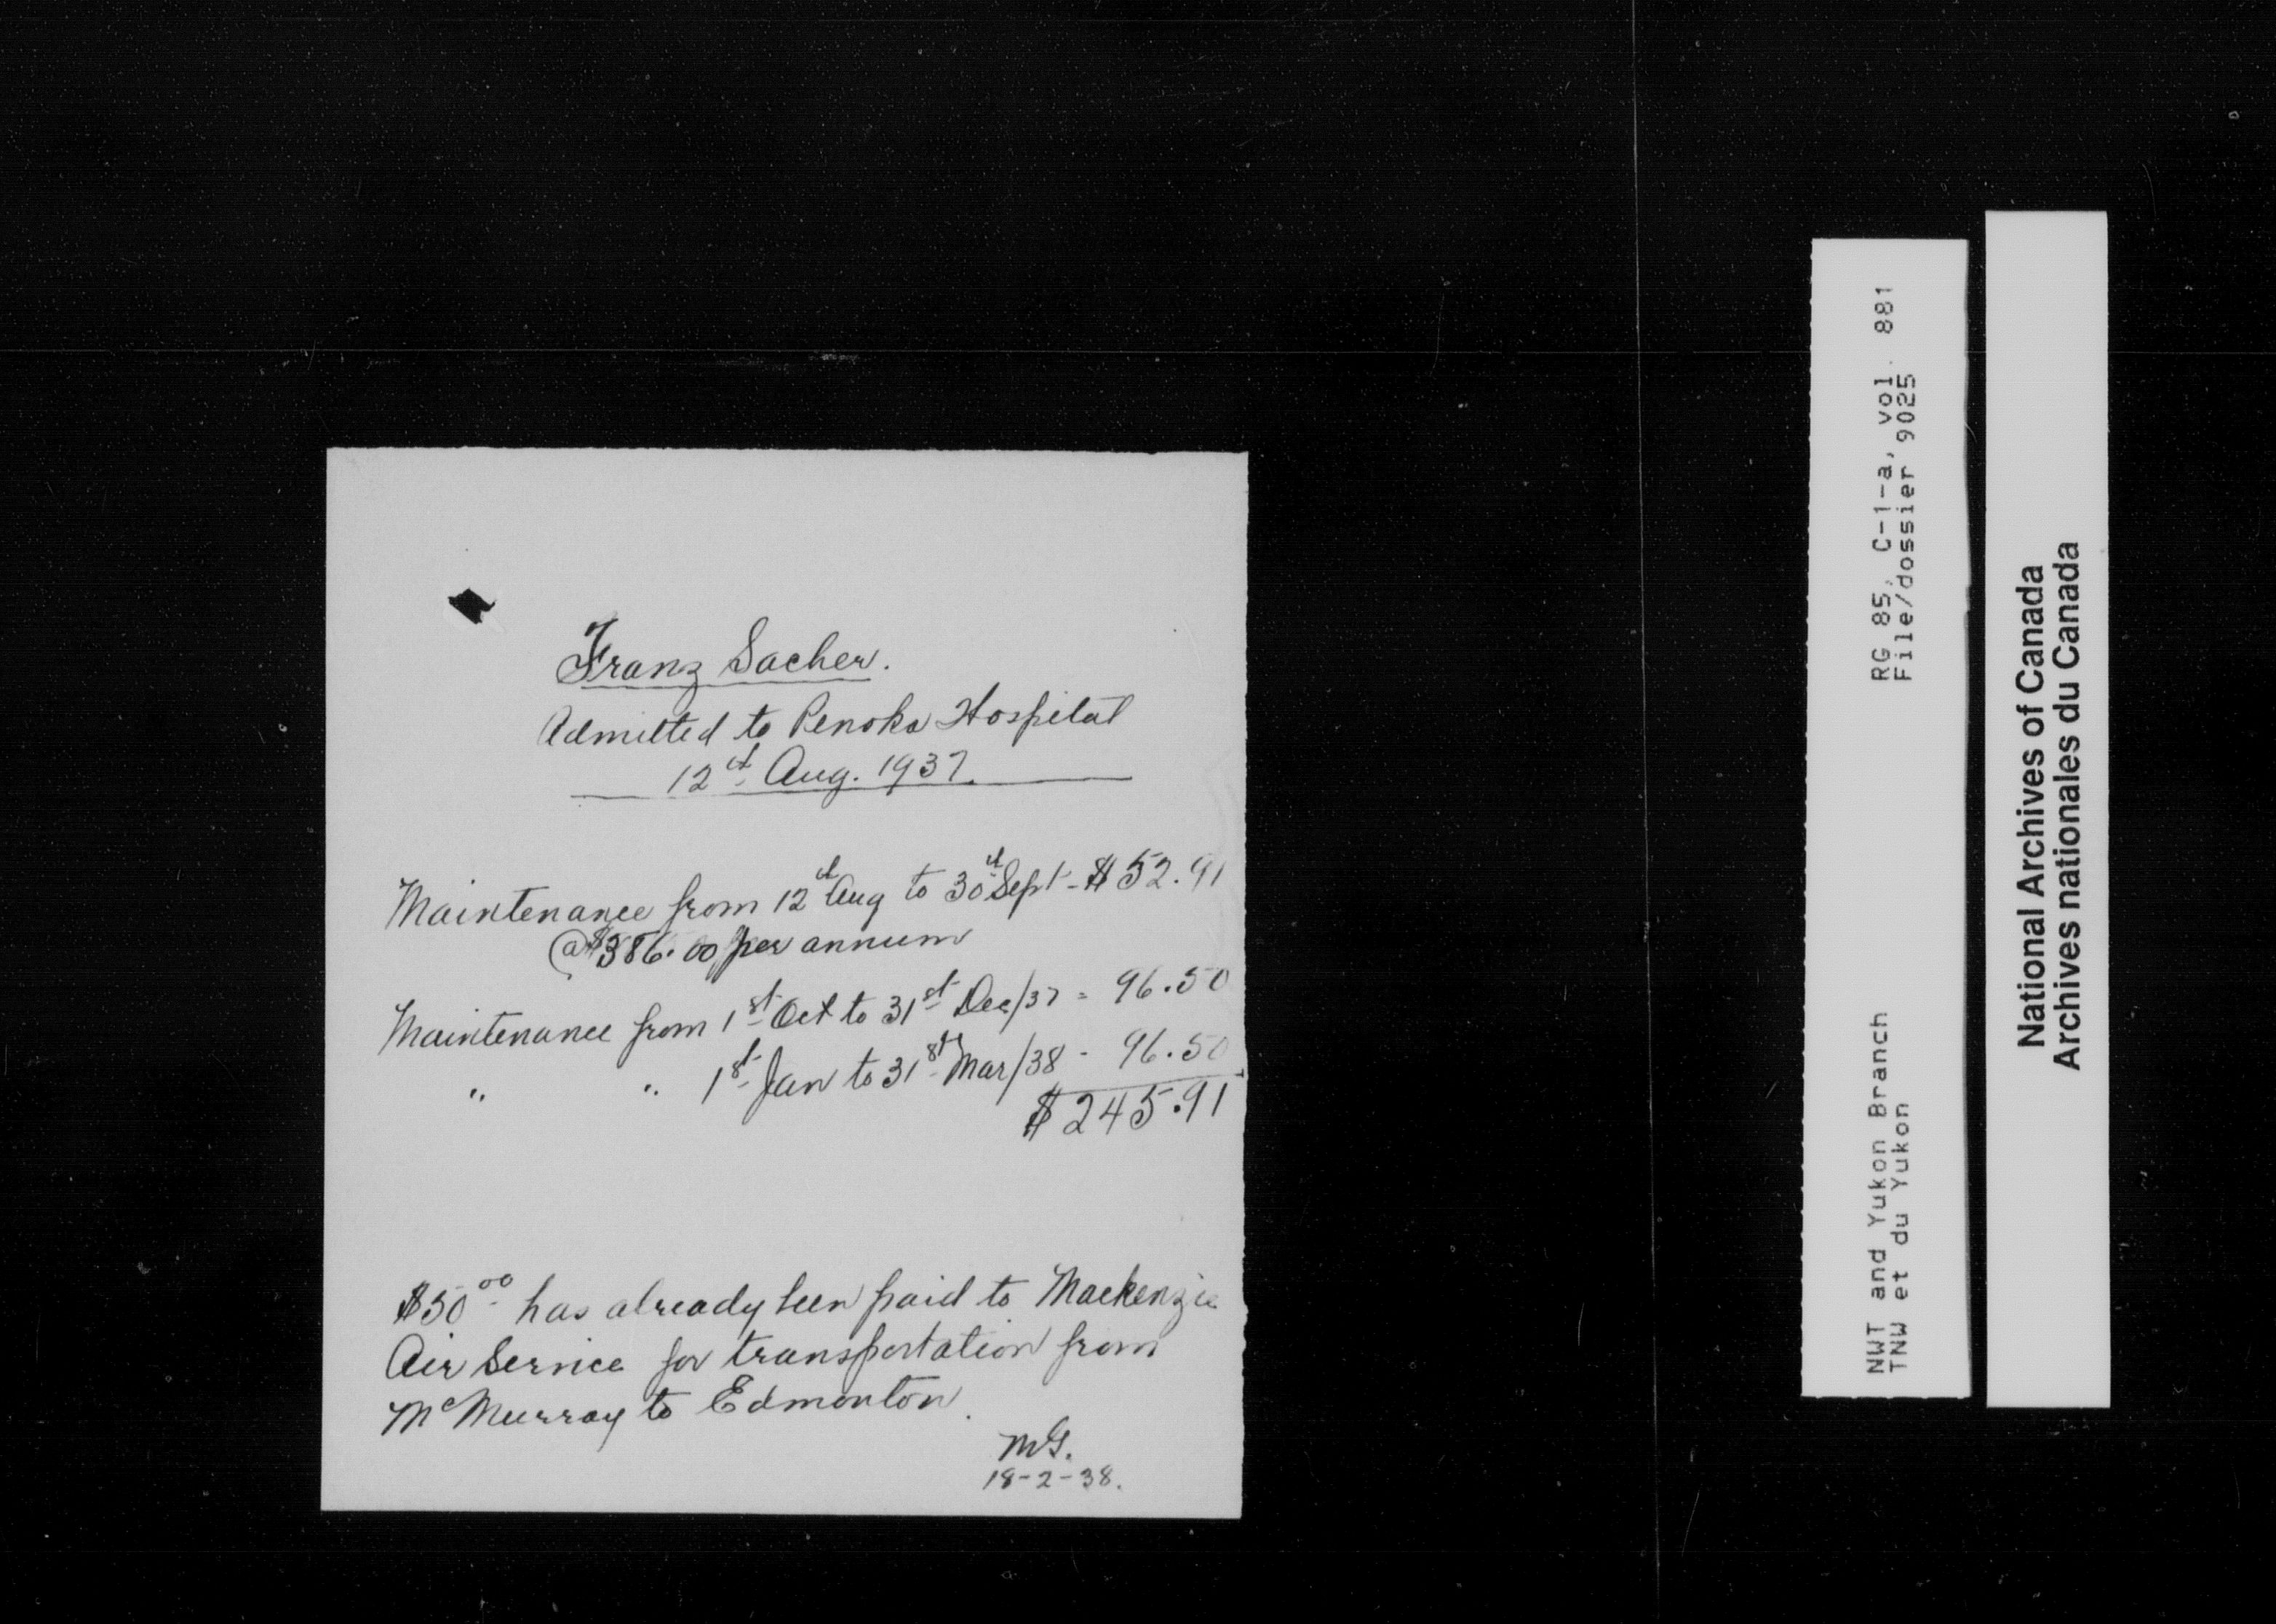 Franz Sacher.
Admitted to Penoka Hospital
12th Aug. 1937.
Maintenance from 12th Aug to 30th Sept - $52.91
@ $386.00 per annum
Maintenance from 1st Oct to 31st Dec/37 = 96.50
" " 1st Jan to 31st Mar/38 - 96.50
$245.91
$50.00 has already been paid to Mackenzie
Air Service for transportation from
McMurray to Edmonton.
MG.
18-2-38.
RG 85, C-1-a, vol. 881
File/dossier 9025
NWT and Yukon Branch
TNW et du Yukon
National Archives of Canada
Archives nationales du Canada